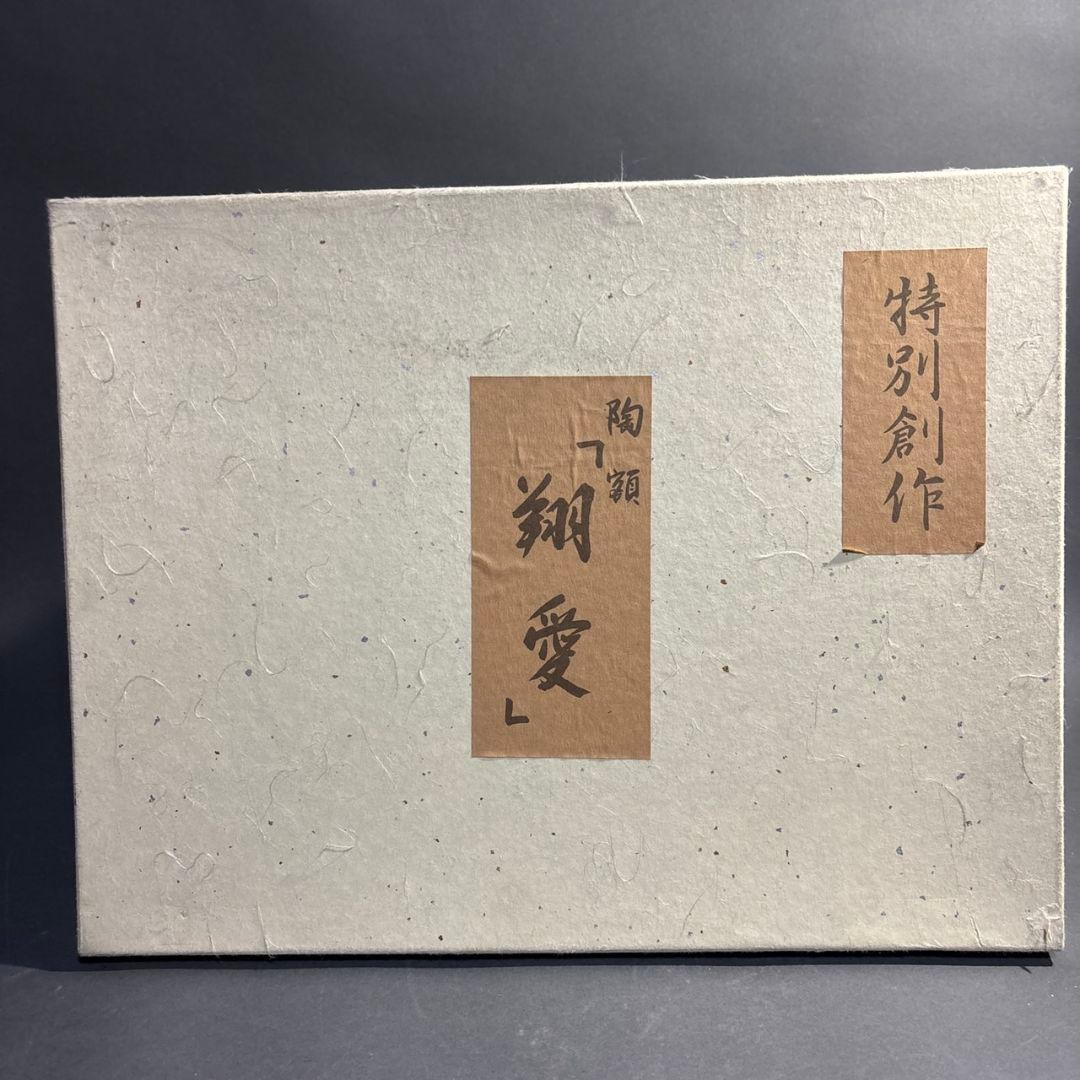 特別創作
陶額
「翔愛」